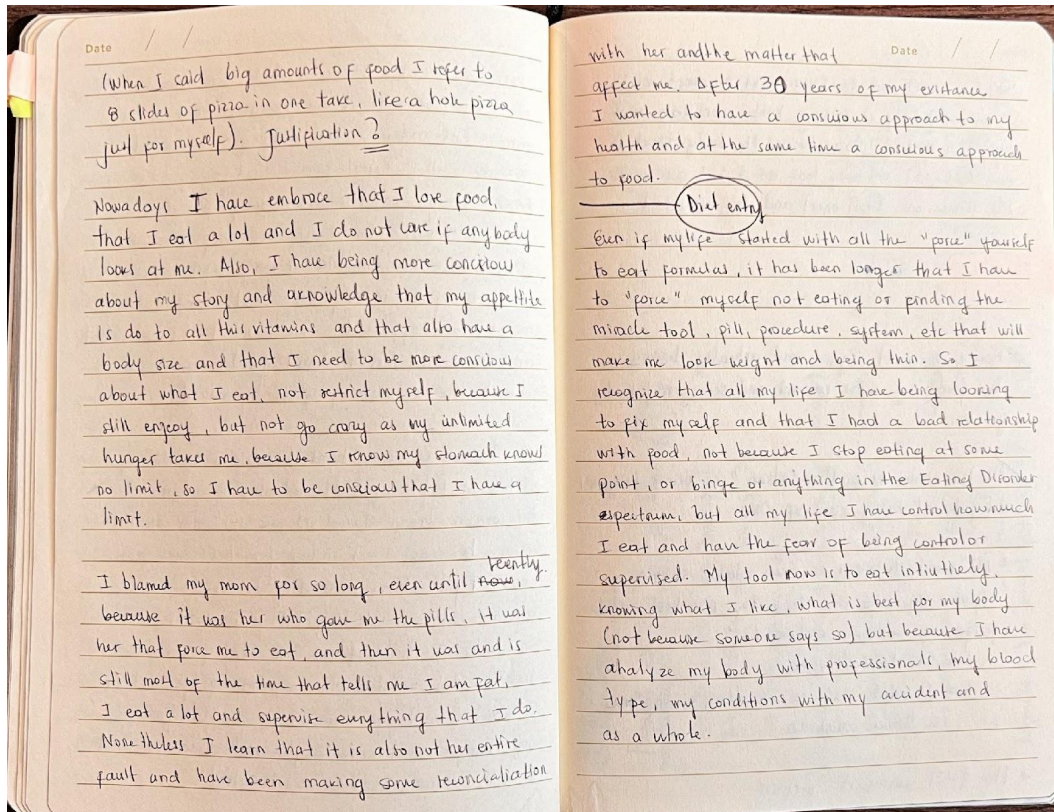 Date / /
(When I said big amounts of food I refer to
8 slides of pizza in one take, like a hole pizza
just for myself). Justification?
Nowadays I have embrace that I love food,
that I eat a lot and I do not care if anybody
looks at me. Also, I have being more concious
about my story and aknowledge that my appettite
is do to all this vitamins and that also have a
body size and that I need to be more conscious
about what I eat, not restrict myself, because I
still engcoy, but not go crazy as my unlimited
hunger takes me, because I know my stomach knows
no limit, so I have to be conscious that I have a
limit.
recently.
I blamed my mom for so long, even until now,
because it was her who gave me the pills, it was
her that force me to eat, and then it was and is
still most of the time that tells me I am fat,
I eat a lot and supervise everything that I do.
Nonetheless I learn that it is also not her entire
fault and have been making some reconcialiation
Date / /
with her and the matter that
affect me. After 30 years of my existance
I wanted to have a conscious approach to my
health and at the same time a conscious approach
to food.
Diet entry
Even if my life started with all the "force" yourself
to eat formulas, it has been longer that I have
to "force" myself not eating or finding the
miracle tool, pill, procedure, system, etc that will
make me loose weight and being thin. So I
recognize that all my life I have being looking
to fix myself and that I had a bad relationship
with food, not because I stop eating at some
point, or binge or anything in the Eating Disorder
espectrum, but all my life I have control how much
I eat and have the fear of being control or
supervised. My tool now is to eat intiutively,
knowing what I like, what is best for my body
(not because someone says so) but because I have
analyze my body with professionals, my blood
type, my conditions with my accident and
as a whole.